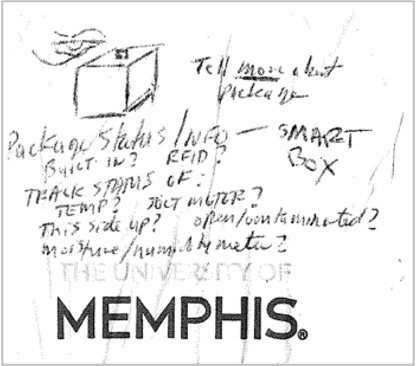 Tell more about
package
Package Status/INFO — SMART
BOX
BUILT IN? RFID?
TRACK STATUS OF:
TEMP? JOLT METER?
This side up? open/contaminated?
moisture/humidity meter?
THE UNIVERSITY OF
MEMPHIS®